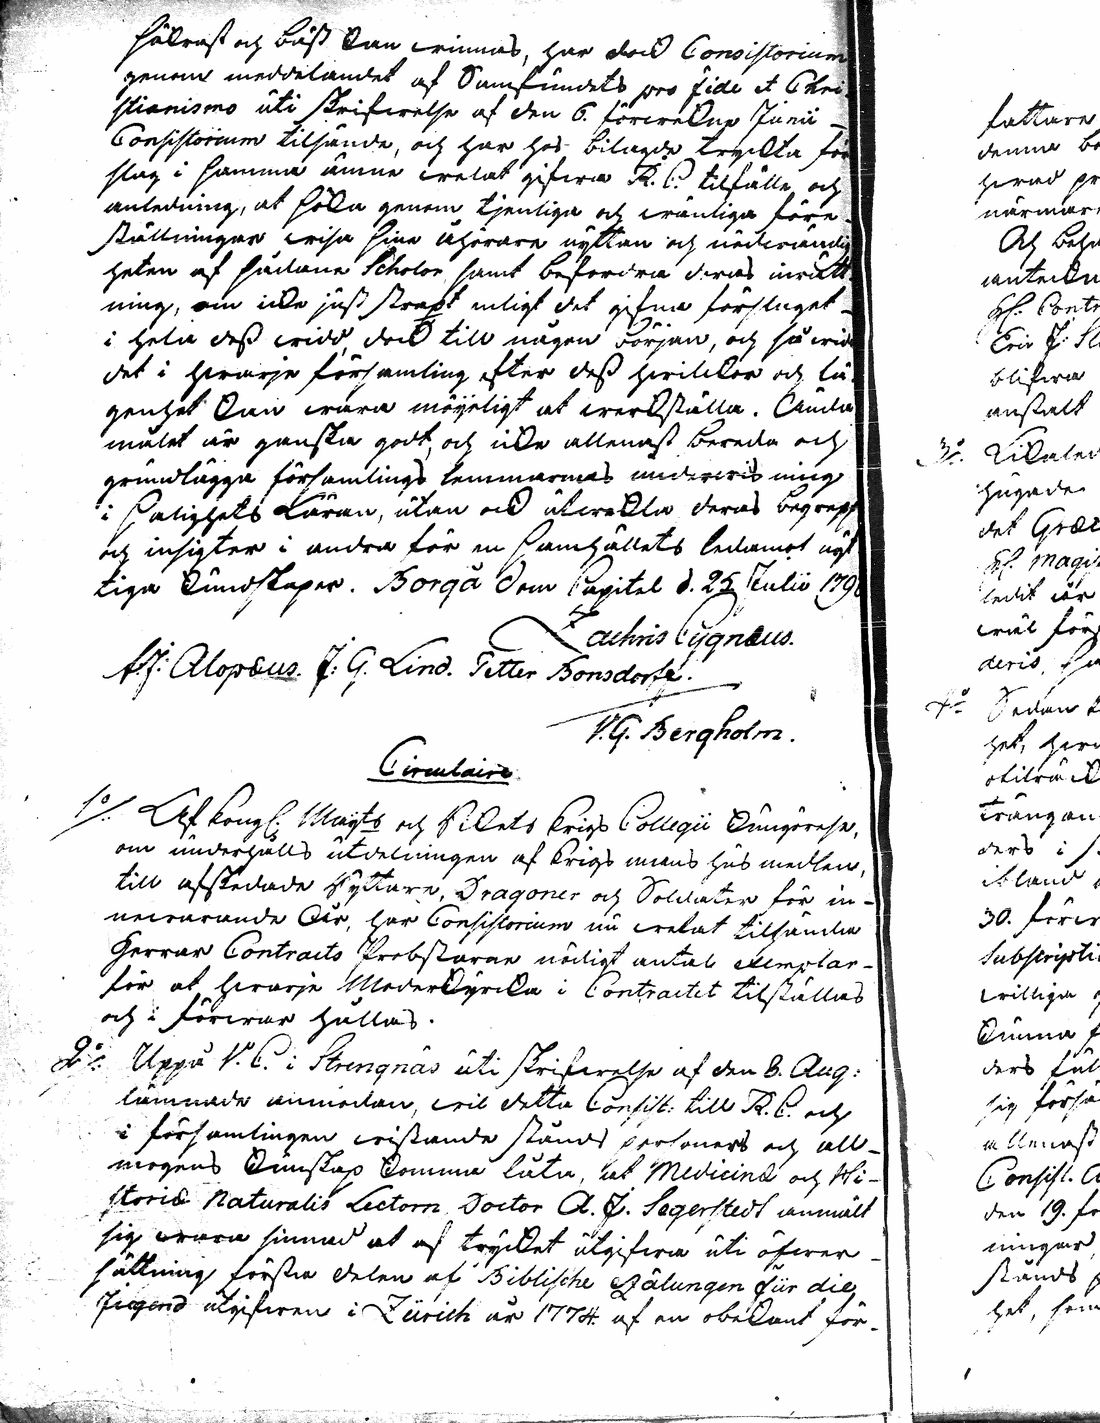 säkrast och bäst kan winnas, har dock Consistorium
genom meddelandet af Samfundets pro fide et Chri-
stianismo uti skrifwelse af den 6. förwekne Junii
Consistorium tilsände, och här hos bilagde tryckta för
slag i samma ämne welat gifwa R. C. tilfälle och
anledning, at söka genom tjenliga och wänliga före-
ställningar wisa sine åhörare nyttan och nödwändig
heten af sådane Scholor, samt befordra deras inrätt-
ning, om icke just strax enligt det gifna förslaget
i hela dess widd, dock till någon början, och så wida
det i hwarje församling efter dess wilckor och lä-
genhet kan wara möjeligt at werkställa. Ända
målet är ganska godt, och icke allenast bereda och
grundlägga församlings lemmarnas underwisning
i Salighets Läran, utan ock utweckla deras begrepp
och insigter i andra för en Samhällets ledamot nyt
tiga kundskaper. Borgå Dom Capitel d. 25 Julii 179
Zachris Cygnæus.
A. J. Alopæus. J. G. Lind. Petter Bonsdorff.
V. G. Bergholm.
Circulaire
1o/. Af Kongl. Maijts och Rikets Krigs Collegii Kungörelse,
om underhålls utdelningen af Krigs mans hus medlen,
till afskedade Ryttare, Dragoner och Soldater för in-
newarande år, har Consistorium nu welat tilsända
Herrar Contracts Probstarne nödigt antal exemplar
för at hwarje Moderkyrcka i Contractet tilställas
och i förwar hållas.
2o/. Uppå V. C. i Strengnäs uti skrifwelse af den 8. Aug:
lämnade anmodan, wil detta Consist: till R. C. och
i församlingen wistande stånds personers och all-
mogens kunskap komma låta, at Medicinæ och Hi-
storiæ Naturalis Lectorn Doctor A. J. Segerstedt anmält
sig wara sinnad at af trycket utgifwa uti öfwer-
sättning första delen af Biblische Ezälungen für die
Jugend utgifwen i Zürich år 1774 af en obekant för-
fattare
denna
hwad
närmare
Och
Contr
Eric J.
blifwa
anstalt
3o/.
det Græ
Magis
4o/. Sedan
ders i
ibland
30.
Subscripti
willige
kunna
ders
sig
allenast
Consist.
den 19.
ningar
stånds
het, som